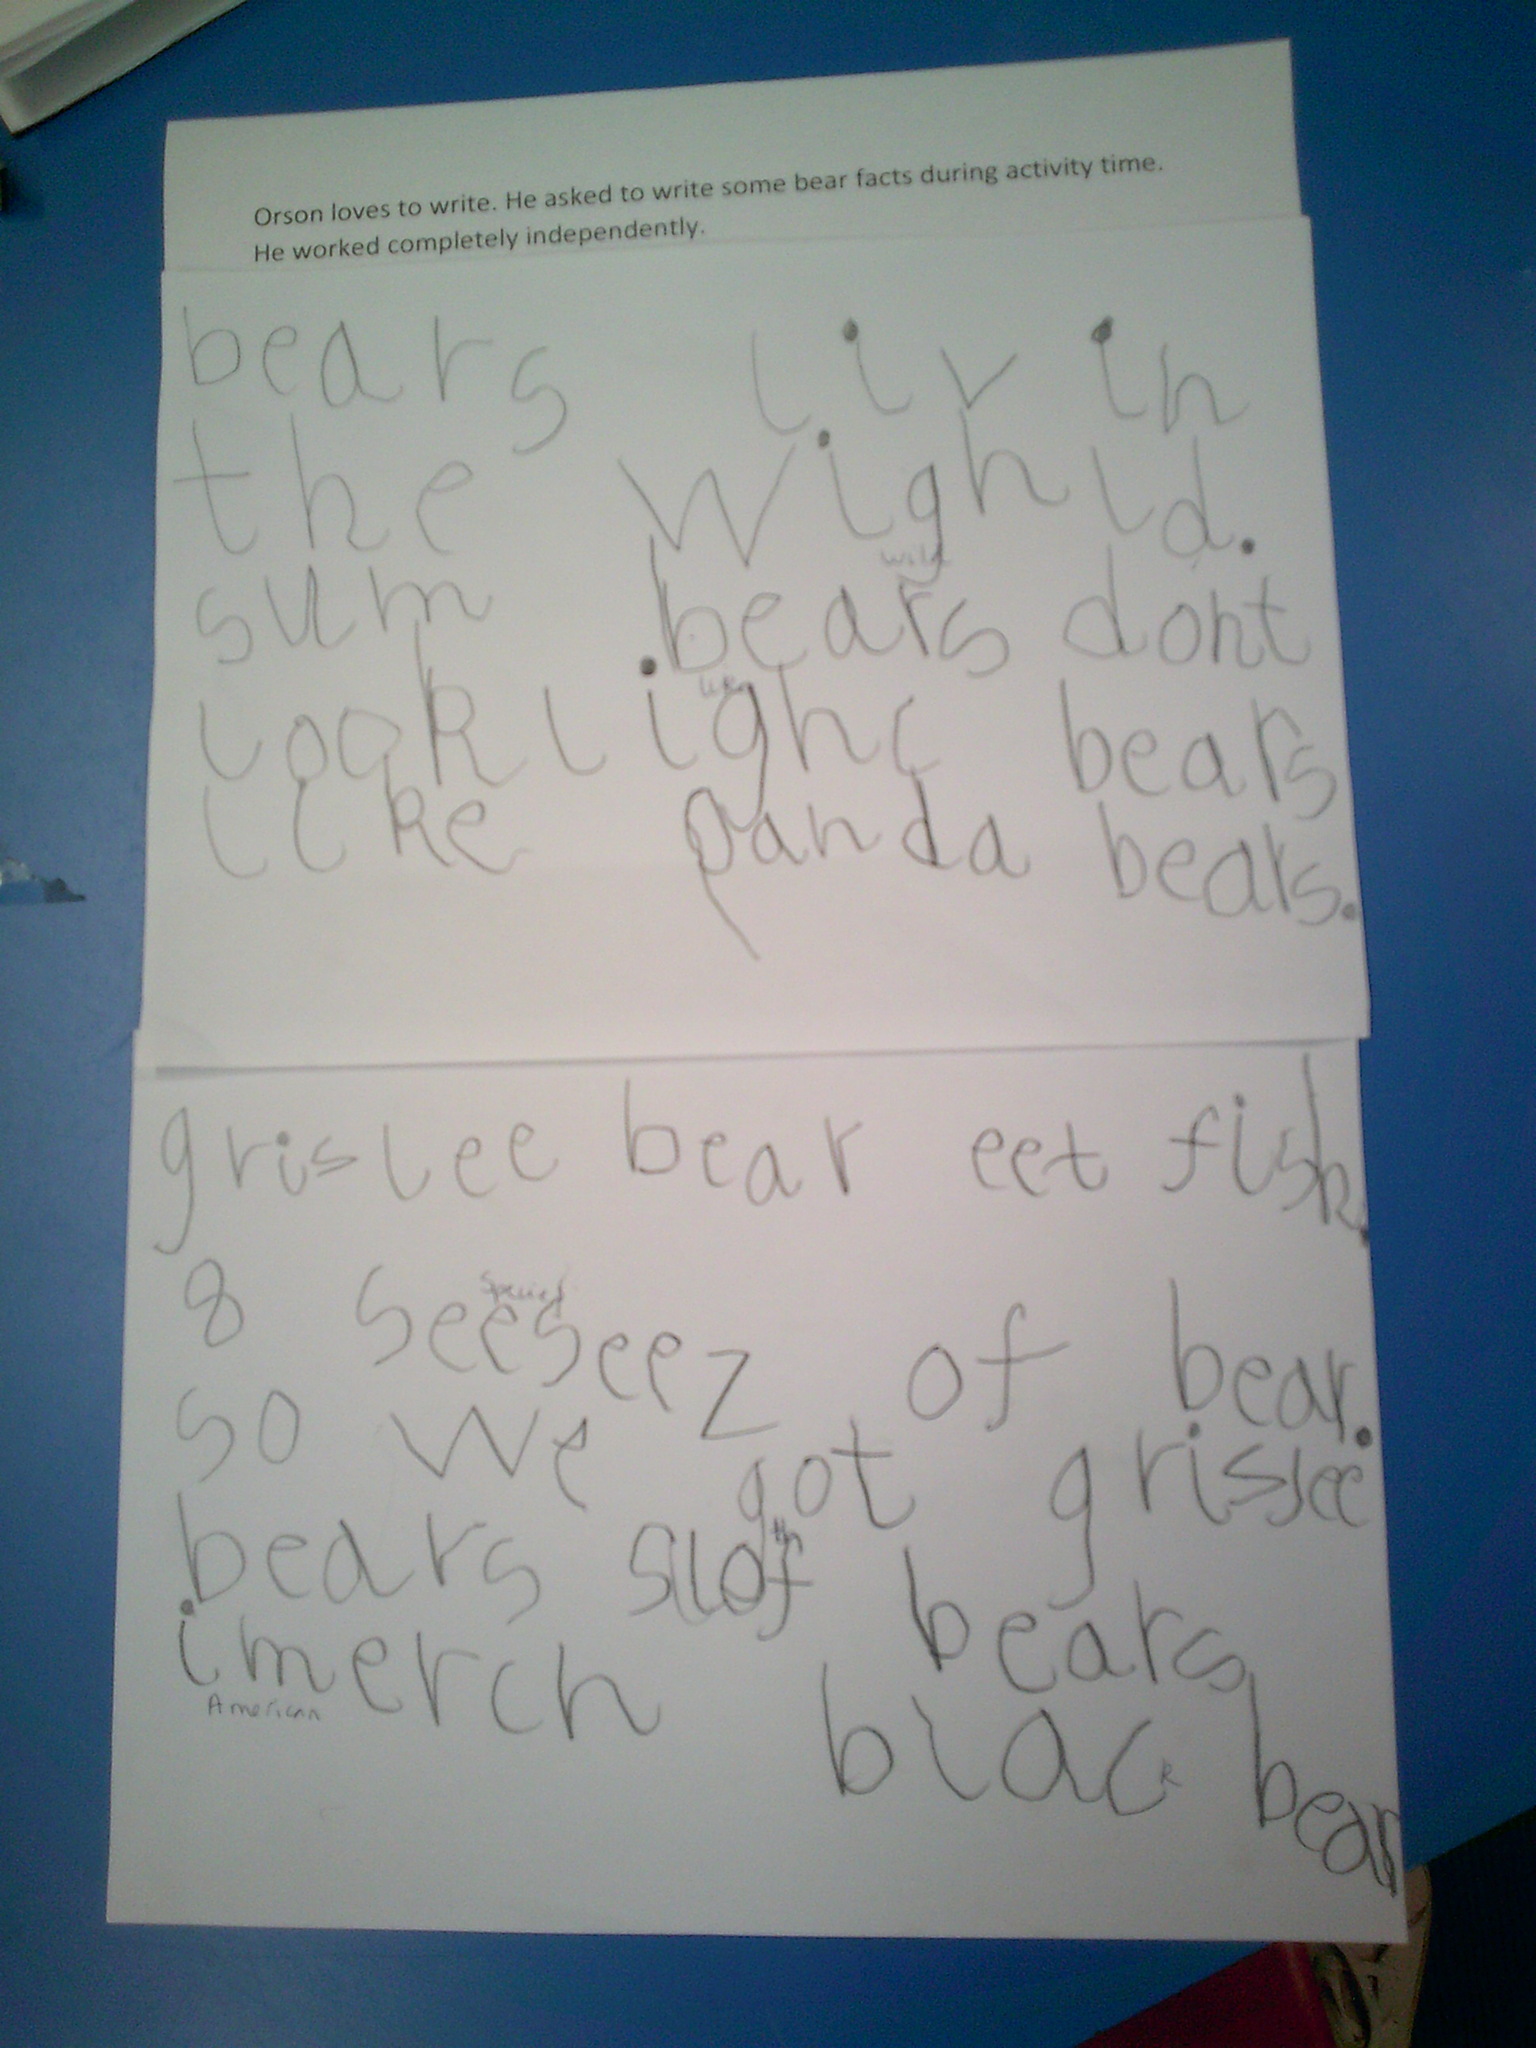 Orson loves to write. He asked to write some bear facts during activity time.
He worked completely independently.
bears liv in
the wighld.
wild
sum bears dont
like
look lighc bears
like panda bears.
grislee bear eet fish.
species
8 seeseez of bear.
so we got grislee
th
bears slof bears
imerch black bear
American